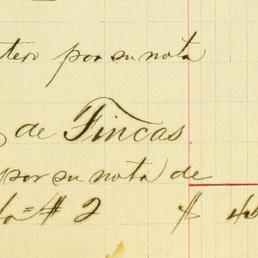 tero por su nota
de Fincas
por su nota de
# 2 $ 45